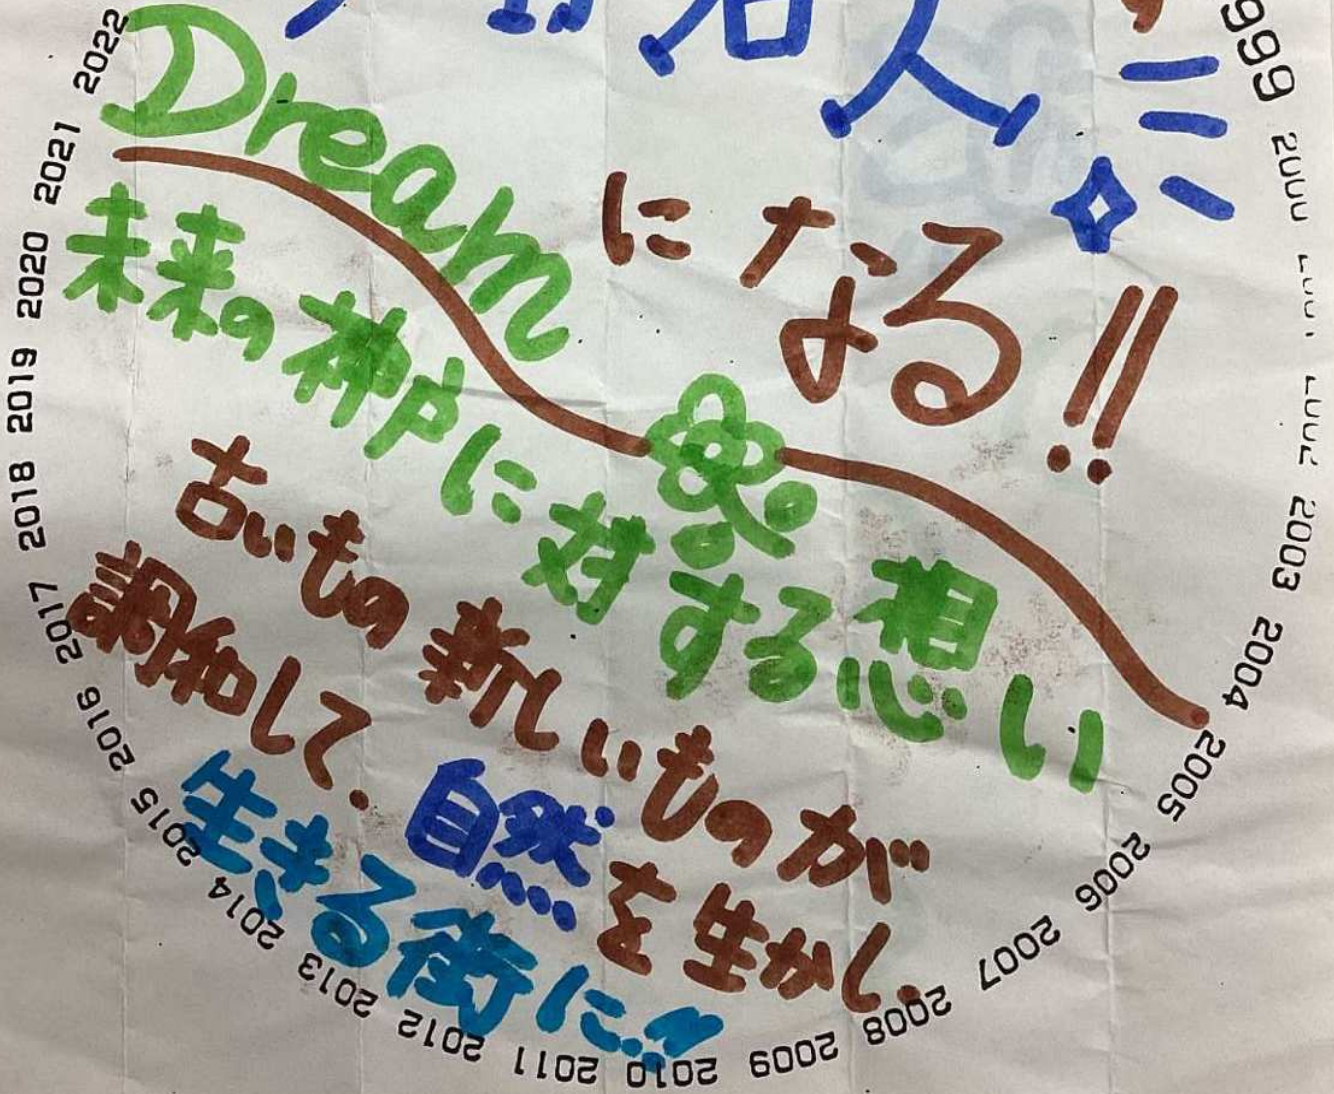 名人
になる!!
Dream
未来の神戸に対する想い
古いもの新しいものが
調和して、自然を生かし、
生きる街に!!
1999
2000
2001
2002
2003
2004
2005
2006
2007
2008
2009
2010
2011
2012
2013
2014
2015
2016
2017
2018
2019
2020
2021
2022